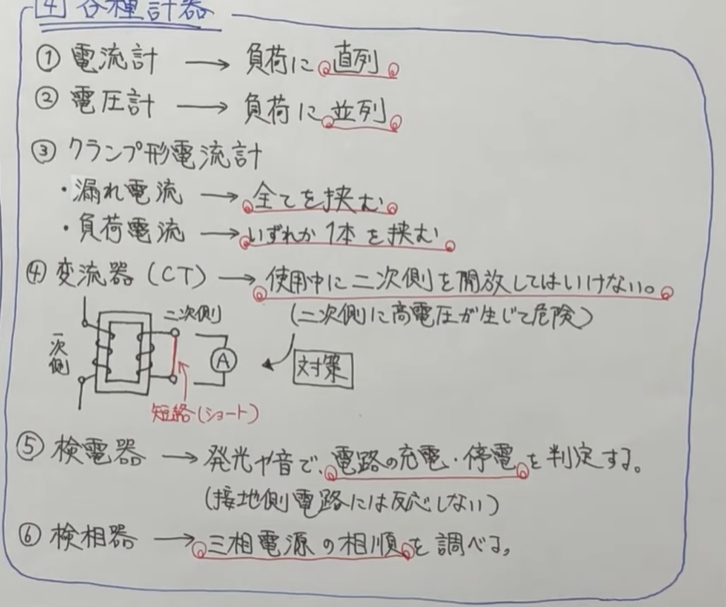 4 各種計器
① 電流計 → 負荷に直列
② 電圧計 → 負荷に並列
③ クランプ形電流計
・漏れ電流 → 全てを挟む
・負荷電流 → いずれか1本を挟む
④ 変流器(CT) → 使用中に二次側を開放してはいけない。
(二次側に高電圧が生じて危険)
一次側
二次側
A
対策
短絡(ショート)
⑤ 検電器 → 発光や音で、電路の充電・停電を判定する。
(接地側電路には反応しない)
⑥ 検相器 → 三相電源の相順を調べる。